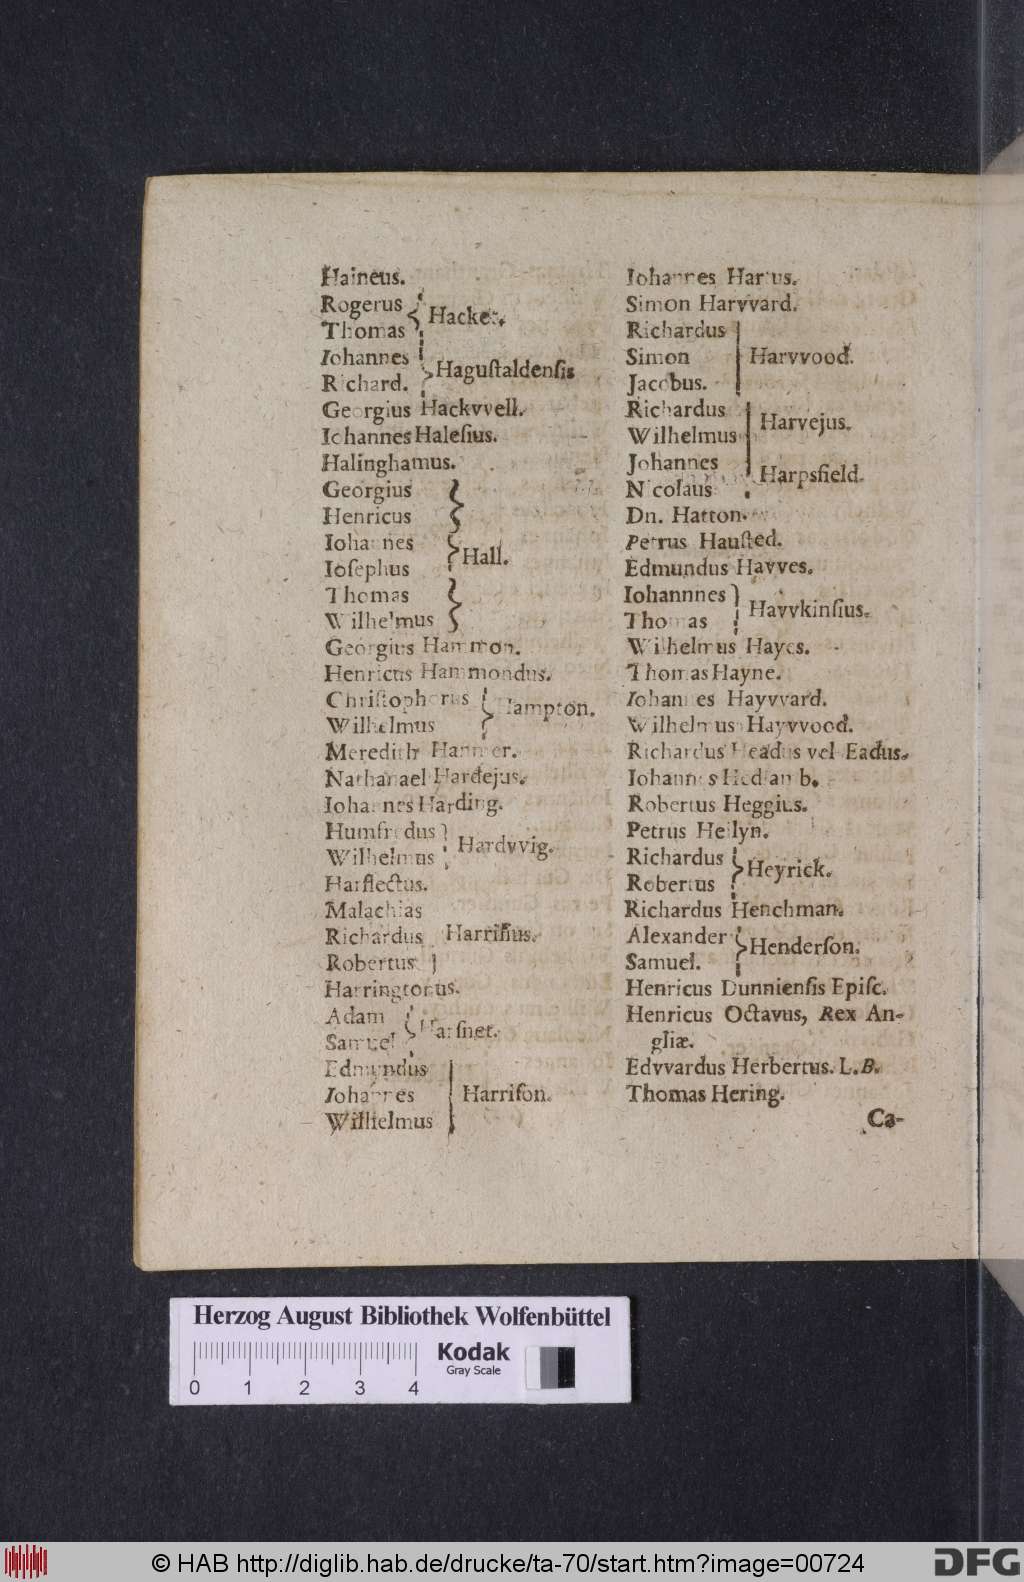 Haineus.
Rogerus
Thomas
Hacket.
Iohannes
Richard.
Haguſtaldenſis
Georgius Hackvvell.
Iohannes Haleſius.
Halinghamus.
Georgius
Henricus
Iohannes
Ioſephus
Thomas
Wilhelmus
Hall.
Georgius Hammon.
Henricus Hammondus.
Chriſtophorus
Wilhelmus
Hampton.
Meredith Hanmer.
Nathanael Hardejus.
Iohannes Harding.
Humfredus
Wilhelmus
Hardvvig.
Harflectus.
Malachias
Richardus
Robertus
Harriſius.
Harringtonus.
Adam
Samuel
Harſnet.
Edmundus
Iohannes
Wilhelmus
Harriſon.
Iohannes Hartus.
Simon Harvvard.
Richardus
Simon
Jacobus.
Harvvood.
Richardus
Wilhelmus
Harvejus.
Johannes
Nicolaus
Harpsfield.
Dn. Hatton.
Petrus Hauſted.
Edmundus Havves.
Iohannnes
Thomas
Havvkinſius.
Wilhelmus Hayes.
Thomas Hayne.
Iohannes Hayvvard.
Wilhelmus Hayvvood.
Richardus Headus vel Eadus.
Iohannes
Robertus Heggius.
Petrus Heilyn.
Richardus
Robertus
Heyrick.
Richardus Henchman.
Alexander
Samuel.
Henderſon.
Henricus Dunnienſis Epiſc.
Henricus Octavus, Rex An-
gliæ.
Edvvardus Herbertus. L. B.
Thomas Hering.
Ca-
Herzog August Bibliothek Wolfenbüttel
Kodak
Gray Scale
0 1 2 3 4
© HAB http://diglib.hab.de/drucke/ta-70/start.htm?image=00724
DFG